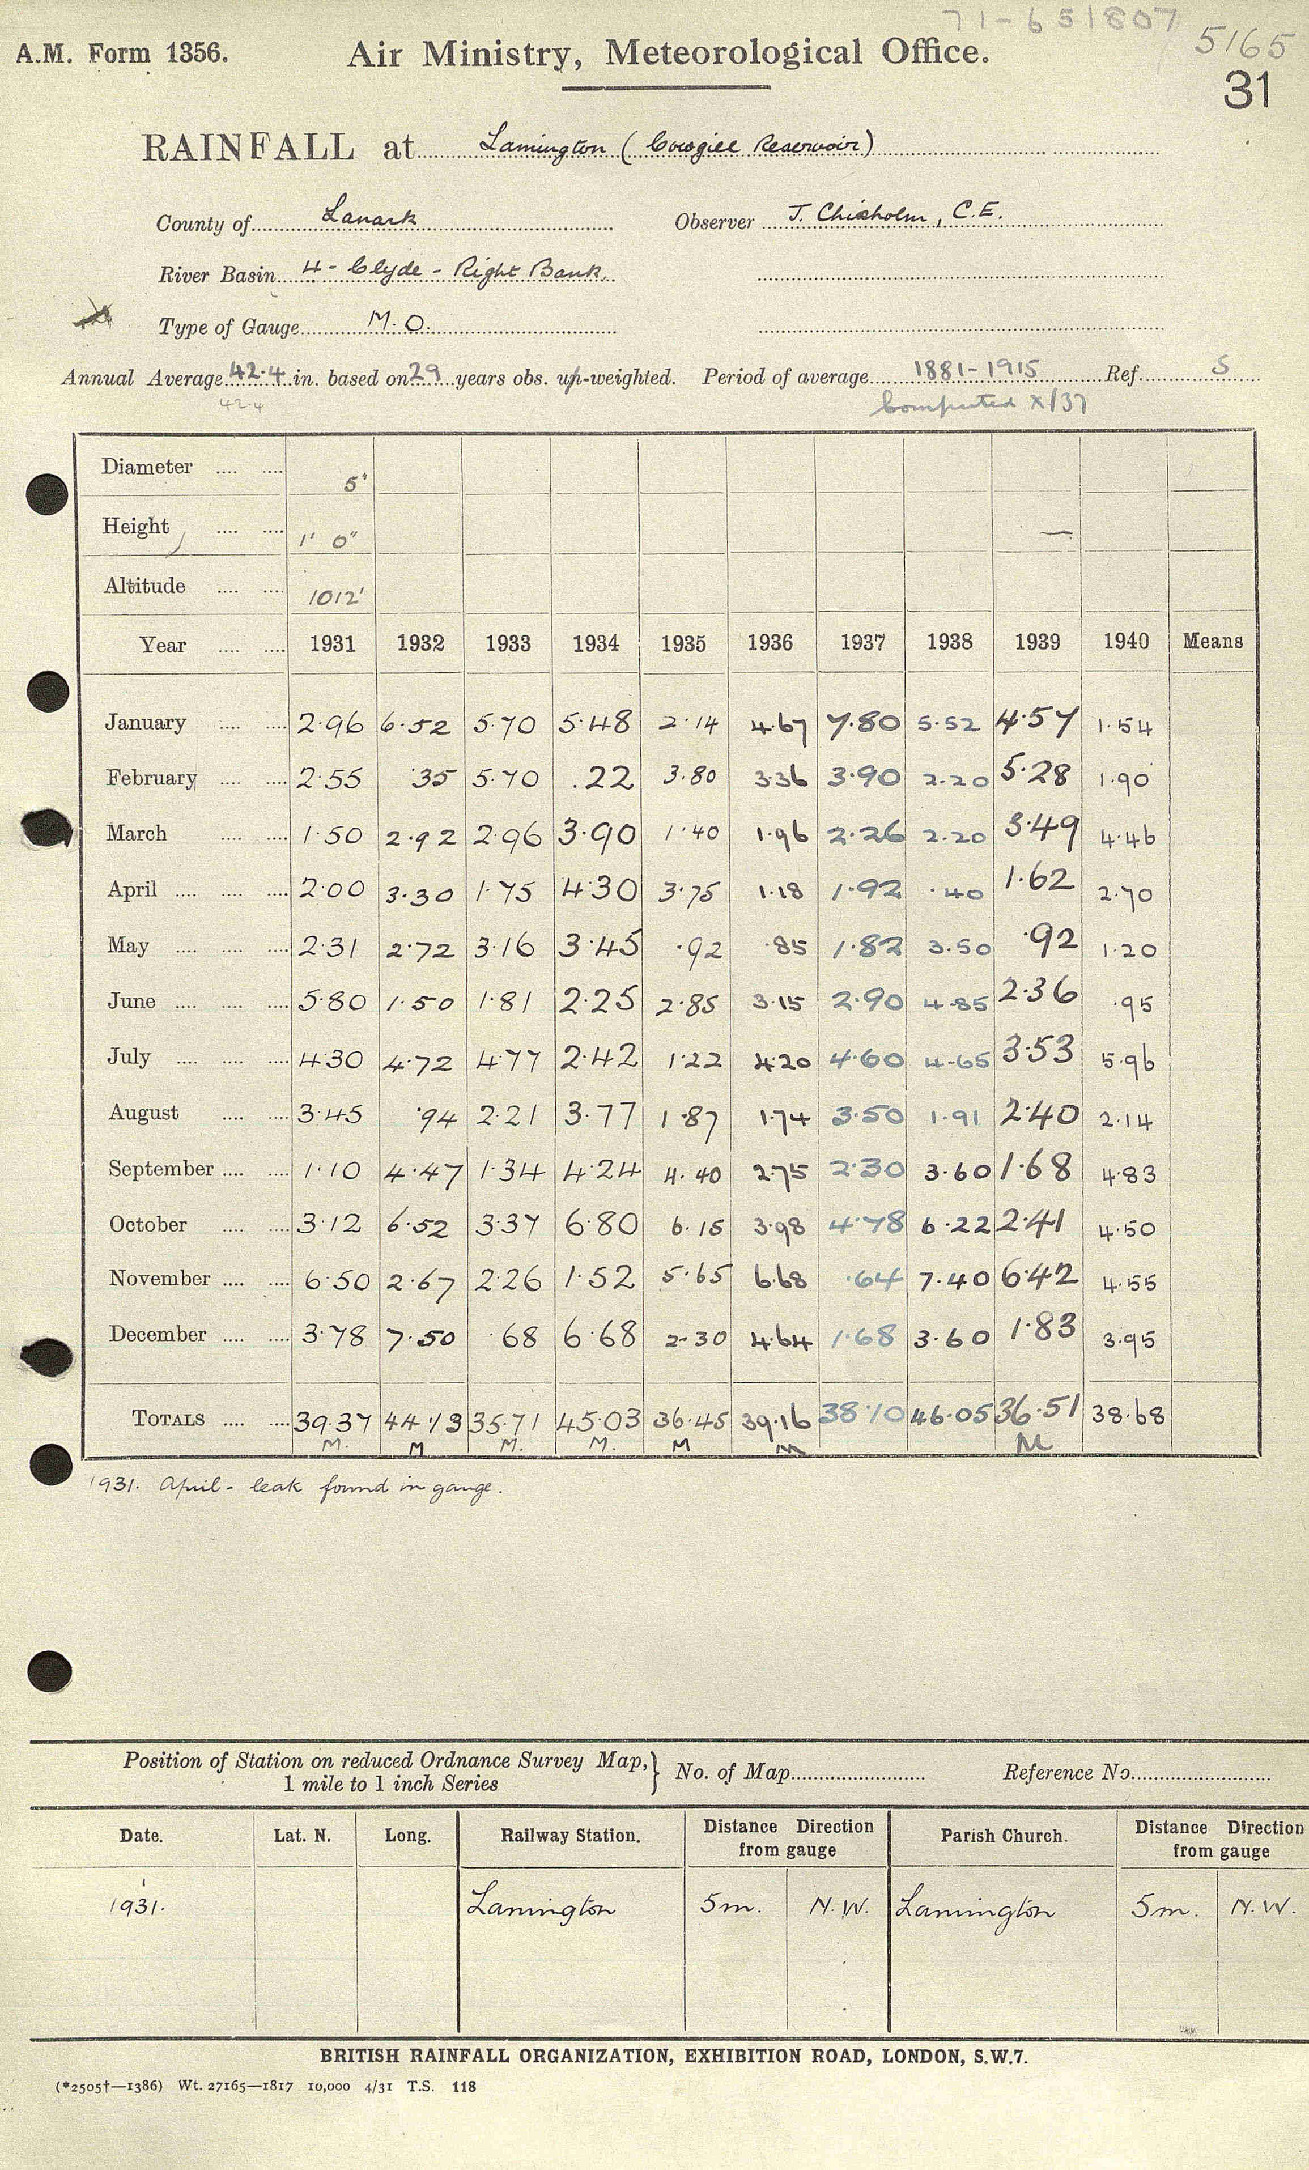 71-651807
5165
A.M. Form 1356.
Air Ministry, Meteorological Office.
31
RAINFALL at Lamington (Cowgill Reservoir)
County of Lanark Observer J. Chisholm, C.E.
River Basin 4 - Clyde - Right Bank.
Type of Gauge M.O.
Annual Average 42.4 in. based on 29 years obs. un-weighted. Period of average 1881-1915 Ref. S
42.4 Computed X/37
Diameter .... .... 5"
Height .... .... 1' 0" —
Altitude .... .... 1012'
Year .... .... 1931 1932 1933 1934 1935 1936 1937 1938 1939 1940 Means
January .... .... 2.96 6.52 5.70 5.48 2.14 4.67 7.80 5.52 4.57 1.54
February .... .... 2.55 .35 5.70 .22 3.80 3.36 3.90 2.20 5.28 1.90
March .... .... 1.50 2.92 2.96 3.90 1.40 1.96 2.26 2.20 3.49 4.46
April .... .... .... 2.00 3.30 1.75 4.30 3.75 1.18 1.92 .40 1.62 2.70
May .... .... .... 2.31 2.72 3.16 3.45 .92 .85 1.82 3.50 .92 1.20
June .... .... .... 5.80 1.50 1.81 2.25 2.85 3.15 2.90 4.85 2.36 .95
July .... .... .... 4.30 4.72 4.77 2.42 1.22 4.20 4.60 4.65 3.53 5.96
August .... .... 3.45 .94 2.21 3.77 1.87 1.74 3.50 1.91 2.40 2.14
September .... .... 1.10 4.47 1.34 4.24 4.40 2.75 2.30 3.60 1.68 4.83
October .... .... 3.12 6.52 3.37 6.80 6.15 3.98 4.78 6.22 2.41 4.50
November .... .... 6.50 2.67 2.26 1.52 5.65 6.68 .64 7.40 6.42 4.55
December .... .... 3.78 7.50 .68 6.68 2.30 4.64 1.68 3.60 1.83 3.95
TOTALS .... .... 39.37 44.13 35.71 45.03 36.45 39.16 38.10 46.05 36.51 38.68
M. M M. M. M M M
1931. April - leak found in gauge.
Position of Station on reduced Ordnance Survey Map, } No. of Map Reference No.
1 mile to 1 inch Series
Date. Lat. N. Long. Railway Station. Distance from gauge Direction Parish Church. Distance from gauge Direction
1931. Lamington 5m. N.W. Lamington 5m. N.W.
BRITISH RAINFALL ORGANIZATION, EXHIBITION ROAD, LONDON, S.W.7.
(*2505†—1386) Wt. 27165—1817 10,000 4/31 T.S. 118